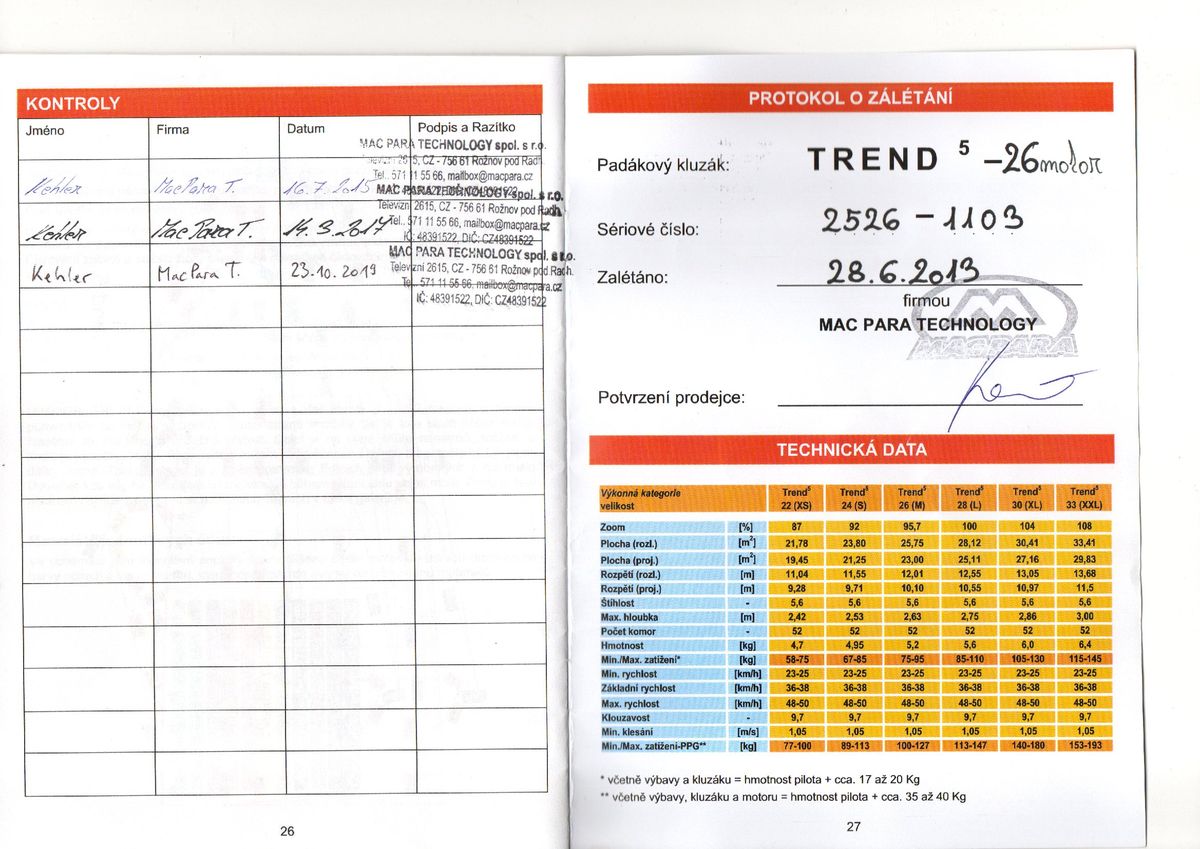 KONTROLY
Jméno Firma Datum Podpis a Razítko
MAC PARA TECHNOLOGY spol. s r.o.
Televizní 2615, CZ - 756 61 Rožnov pod Radh.
Tel.: 571 11 55 66, mailbox@macpara.cz
Kehler MacPara T. 16.7.2015
MAC PARA TECHNOLOGY spol. s r.o.
Televizní 2615, CZ - 756 61 Rožnov pod Radh.
Tel.: 571 11 55 66, mailbox@macpara.cz
IČ: 48391522, DIČ: CZ48391522
Kehler MacPara T. 14.3.2017
MAC PARA TECHNOLOGY spol. s r.o.
Televizní 2615, CZ - 756 61 Rožnov pod Radh.
Tel.: 571 11 55 66, mailbox@macpara.cz
IČ: 48391522, DIČ: CZ48391522
Kehler MacPara T. 23.10.2019
26
PROTOKOL O ZÁLÉTÁNÍ
Padákový kluzák: TREND 5 -26 motor
Sériové číslo: 2526 - 1103
Zalétáno: 28.6.2013
firmou
MAC PARA TECHNOLOGY
MACPARA
Potvrzení prodejce:
TECHNICKÁ DATA
Výkonná kategorie Trend5 Trend5 Trend5 Trend5 Trend5 Trend5
velikost 22 (XS) 24 (S) 26 (M) 28 (L) 30 (XL) 33 (XXL)
Zoom [%] 87 92 95,7 100 104 108
Plocha (rozl.) [m2] 21,78 23,80 25,75 28,12 30,41 33,41
Plocha (proj.) [m2] 19,45 21,25 23,00 25,11 27,16 29,83
Rozpětí (rozl.) [m] 11,04 11,55 12,01 12,55 13,05 13,68
Rozpětí (proj.) [m] 9,28 9,71 10,10 10,55 10,97 11,5
Štíhlost - 5,6 5,6 5,6 5,6 5,6 5,6
Max. hloubka [m] 2,42 2,53 2,63 2,75 2,86 3,00
Počet komor - 52 52 52 52 52 52
Hmotnost [kg] 4,7 4,95 5,2 5,6 6,0 6,4
Min./Max. zatížení* [kg] 58-75 67-85 75-95 85-110 105-130 115-145
Min. rychlost [km/h] 23-25 23-25 23-25 23-25 23-25 23-25
Základní rychlost [km/h] 36-38 36-38 36-38 36-38 36-38 36-38
Max. rychlost [km/h] 48-50 48-50 48-50 48-50 48-50 48-50
Klouzavost - 9,7 9,7 9,7 9,7 9,7 9,7
Min. klesání [m/s] 1,05 1,05 1,05 1,05 1,05 1,05
Min./Max. zatížení-PPG** [kg] 77-100 89-113 100-127 113-147 140-180 153-193
* včetně výbavy a kluzáku = hmotnost pilota + cca. 17 až 20 Kg
** včetně výbavy, kluzáku a motoru = hmotnost pilota + cca. 35 až 40 Kg
27